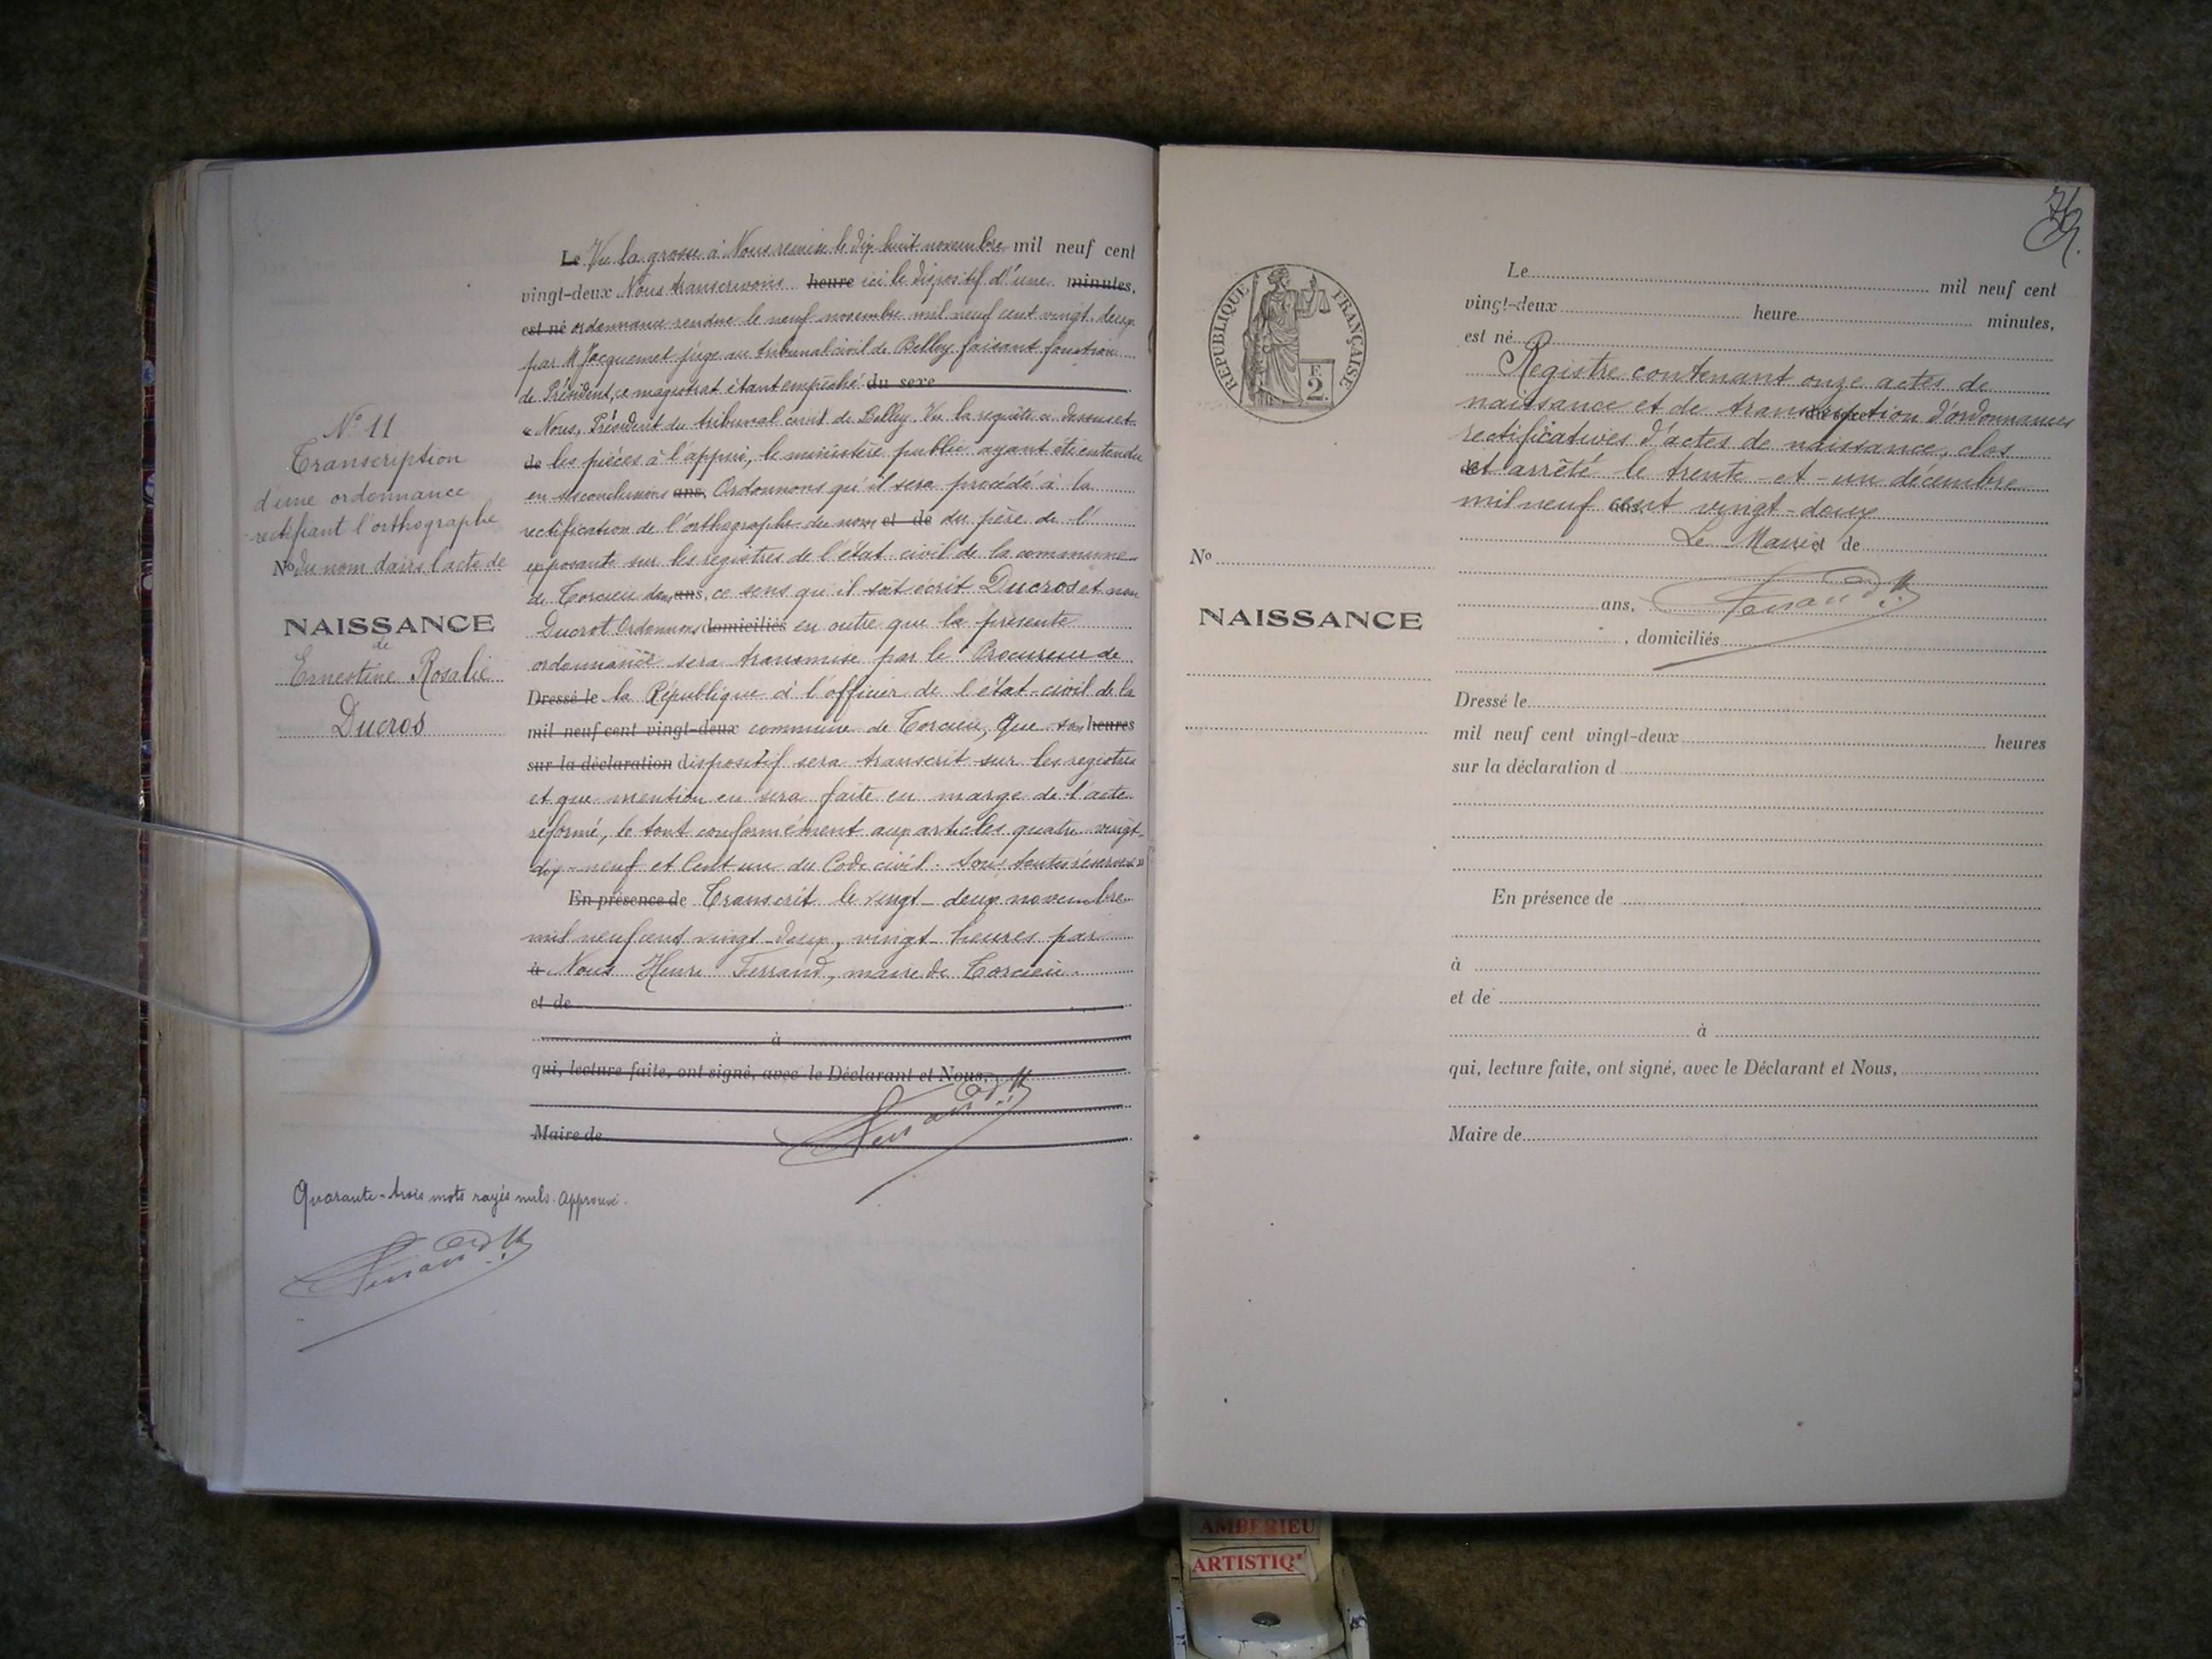 N° 11
Transcription
d'une ordonnance
rectifiant l'orthographe
No du nom dans l'acte de
NAISSANCE
de
Ernestine Rosalie
Ducros
Le Vu la grosse à Nous remise le dix huit novembre mil neuf cent
vingt-deux Nous transcrivons heure ici le dispositif d'une minutes,
est né ordonnance rendue le neuf novembre mil neuf cent vingt-deux
par M Jacquemet juge au tribunal civil de Belley faisant fonction
de Président, ce magistrat étant empêché du sexe
« Nous, Président du tribunal civil de Belley. Vu la requête ci dessus et
de les pièces à l'appui, le ministère public ayant été entendu
en ses conclusions ans, Ordonnons qu'il sera procédé à la
rectification de l'orthographe du nom et de du père de l'
exposante sur les registres de l'état civil de la commune
de Torcieu dans ans, ce sens qu'il soit écrit Ducros et non
Ducrot Ordonnons domiciliés en outre que la présente
ordonnance sera transmise par le Procureur de
Dressé le la République à l'officier de l'état-civil de la
mil neuf cent vingt-deux commune de Torcieu, que son heures
sur la déclaration dispositif sera transcrit sur les registres
et que mention en sera faite en marge de l'acte
réformé, le tout conformément aux articles quatre vingt-
dix-neuf et cent un du Code civil. Sous toutes réserves »
En présence de Transcrit le vingt-deux novembre
mil neuf cent vingt-deux, vingt heures par
à Nous Henri Ferrand, maire de Torcieu.
et de
à
qui, lecture faite, ont signé, avec le Déclarant et Nous,
Maire de
Ferrand H
Quarante-trois mots rayés nuls. Approuvé.
Ferrand H
RÉPUBLIQUE FRANÇAISE
2 F.
No
NAISSANCE
Le mil neuf cent
vingt-deux heure minutes,
est né
Registre contenant onze actes de
naissance et de transcription d'ordonnances
rectificatives d'actes de naissance, clos
et arrêté le trente-et-un décembre
mil neuf cent vingt-deux
Le Maire et de
ans, Ferrand H
, domiciliés
Dressé le
mil neuf cent vingt-deux heures
sur la déclaration d
En présence de
à
et de
à
qui, lecture faite, ont signé, avec le Déclarant et Nous,
Maire de
AMBERIEU
ARTISTIQ